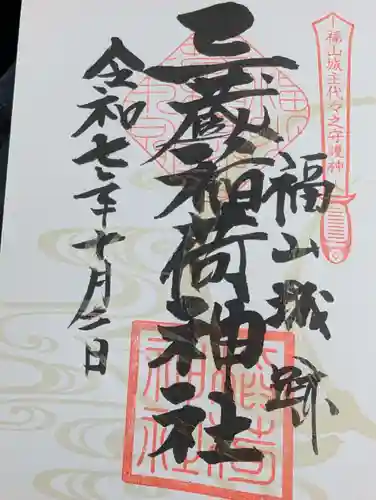 福山城主代々之守護神
福山城跡
三蔵稲荷神社
令和七年十月二日